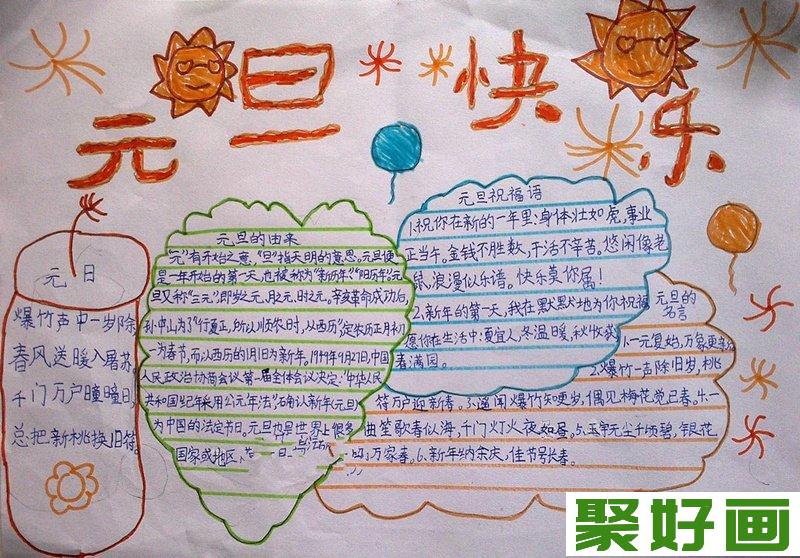 元旦快乐
元日
爆竹声中一岁除
春风送暖入屠苏
千门万户曈曈日
总把新桃换旧符
元旦的由来
"元"有开始之意,"旦"指天明的意思。元旦便
是一年开始的第一天,也被称为"新历年""阳历年"。元
旦又称"三元",即岁之元、月之元、时之元。辛亥革命成功后,
孙中山为了"行夏正,所以顺农时,以西历"定农历正月初
一为春节,而以西历的1月1日为新年,1949年9月27日,中国
人民政治协商会议第一届全体会议决定:"中华人民
共和国纪年采用公元年法",确认新年(元旦)
为中国的法定节日。元旦也是世界上很多
国家或地区
元旦祝福语
1.祝你在新的一年里:身体壮如虎,事业
正当午。金钱不胜数,干活不辛苦。悠闲像老
鼠,浪漫似乐谱。快乐莫你属!
2、新年的第一天,我在默默地为你祝福
愿你在生活中:夏宜人,冬温暖,秋收获
春满园。
元旦的
名言
1.一元复始,万象更新
2.爆竹一声除旧岁,桃
符万户迎新春。3.遥闻爆竹知更岁,偶见梅花觉已春。4.一
曲笙歌春似海,千门灯火夜如昼。5.玉宇无尘千顷碧,银花
万家春。6、新年纳余庆,佳节号长春。
聚好画